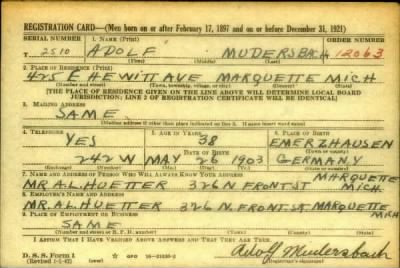 REGISTRATION CARD—(Men born on or after February 17, 1897 and on or before December 31, 1921)
SERIAL NUMBER 1. NAME (Print) ORDER NUMBER
T 2510 ADOLF MUDERSBACH 12063
(First) (Middle) (Last)
2. PLACE OF RESIDENCE (Print)
425 E HEWITT AVE MARQUETTE MICH
(Number and street) (Town, township, village, or city) (County) (State)
[THE PLACE OF RESIDENCE GIVEN ON THE LINE ABOVE WILL DETERMINE LOCAL BOARD
JURISDICTION; LINE 2 OF REGISTRATION CERTIFICATE WILL BE IDENTICAL]
3. MAILING ADDRESS
SAME
[Mailing address if other than place indicated on line 2. If same insert word same]
4. TELEPHONE 5. AGE IN YEARS 6. PLACE OF BIRTH
YES 38 EMERZHAUSEN
DATE OF BIRTH (Town or county)
242W MAY 26 1903 GERMANY
(Exchange) (Number) (Mo.) (Day) (Yr.) (State or country)
7. NAME AND ADDRESS OF PERSON WHO WILL ALWAYS KNOW YOUR ADDRESS MARQUETTE
MR. A.L. HUETTER 326 N FRONT ST MICH
8. EMPLOYER'S NAME AND ADDRESS
MR. A.L. HUETTER 326 N. FRONT. ST MARQUETTE
9. PLACE OF EMPLOYMENT OR BUSINESS MICH
SAME
(Number and street or R. F. D. number) (Town) (County) (State)
I AFFIRM THAT I HAVE VERIFIED ABOVE ANSWERS AND THAT THEY ARE TRUE.
D. S. S. Form 1
(Revised 1-1-42) GPO Adolf Mudersbach